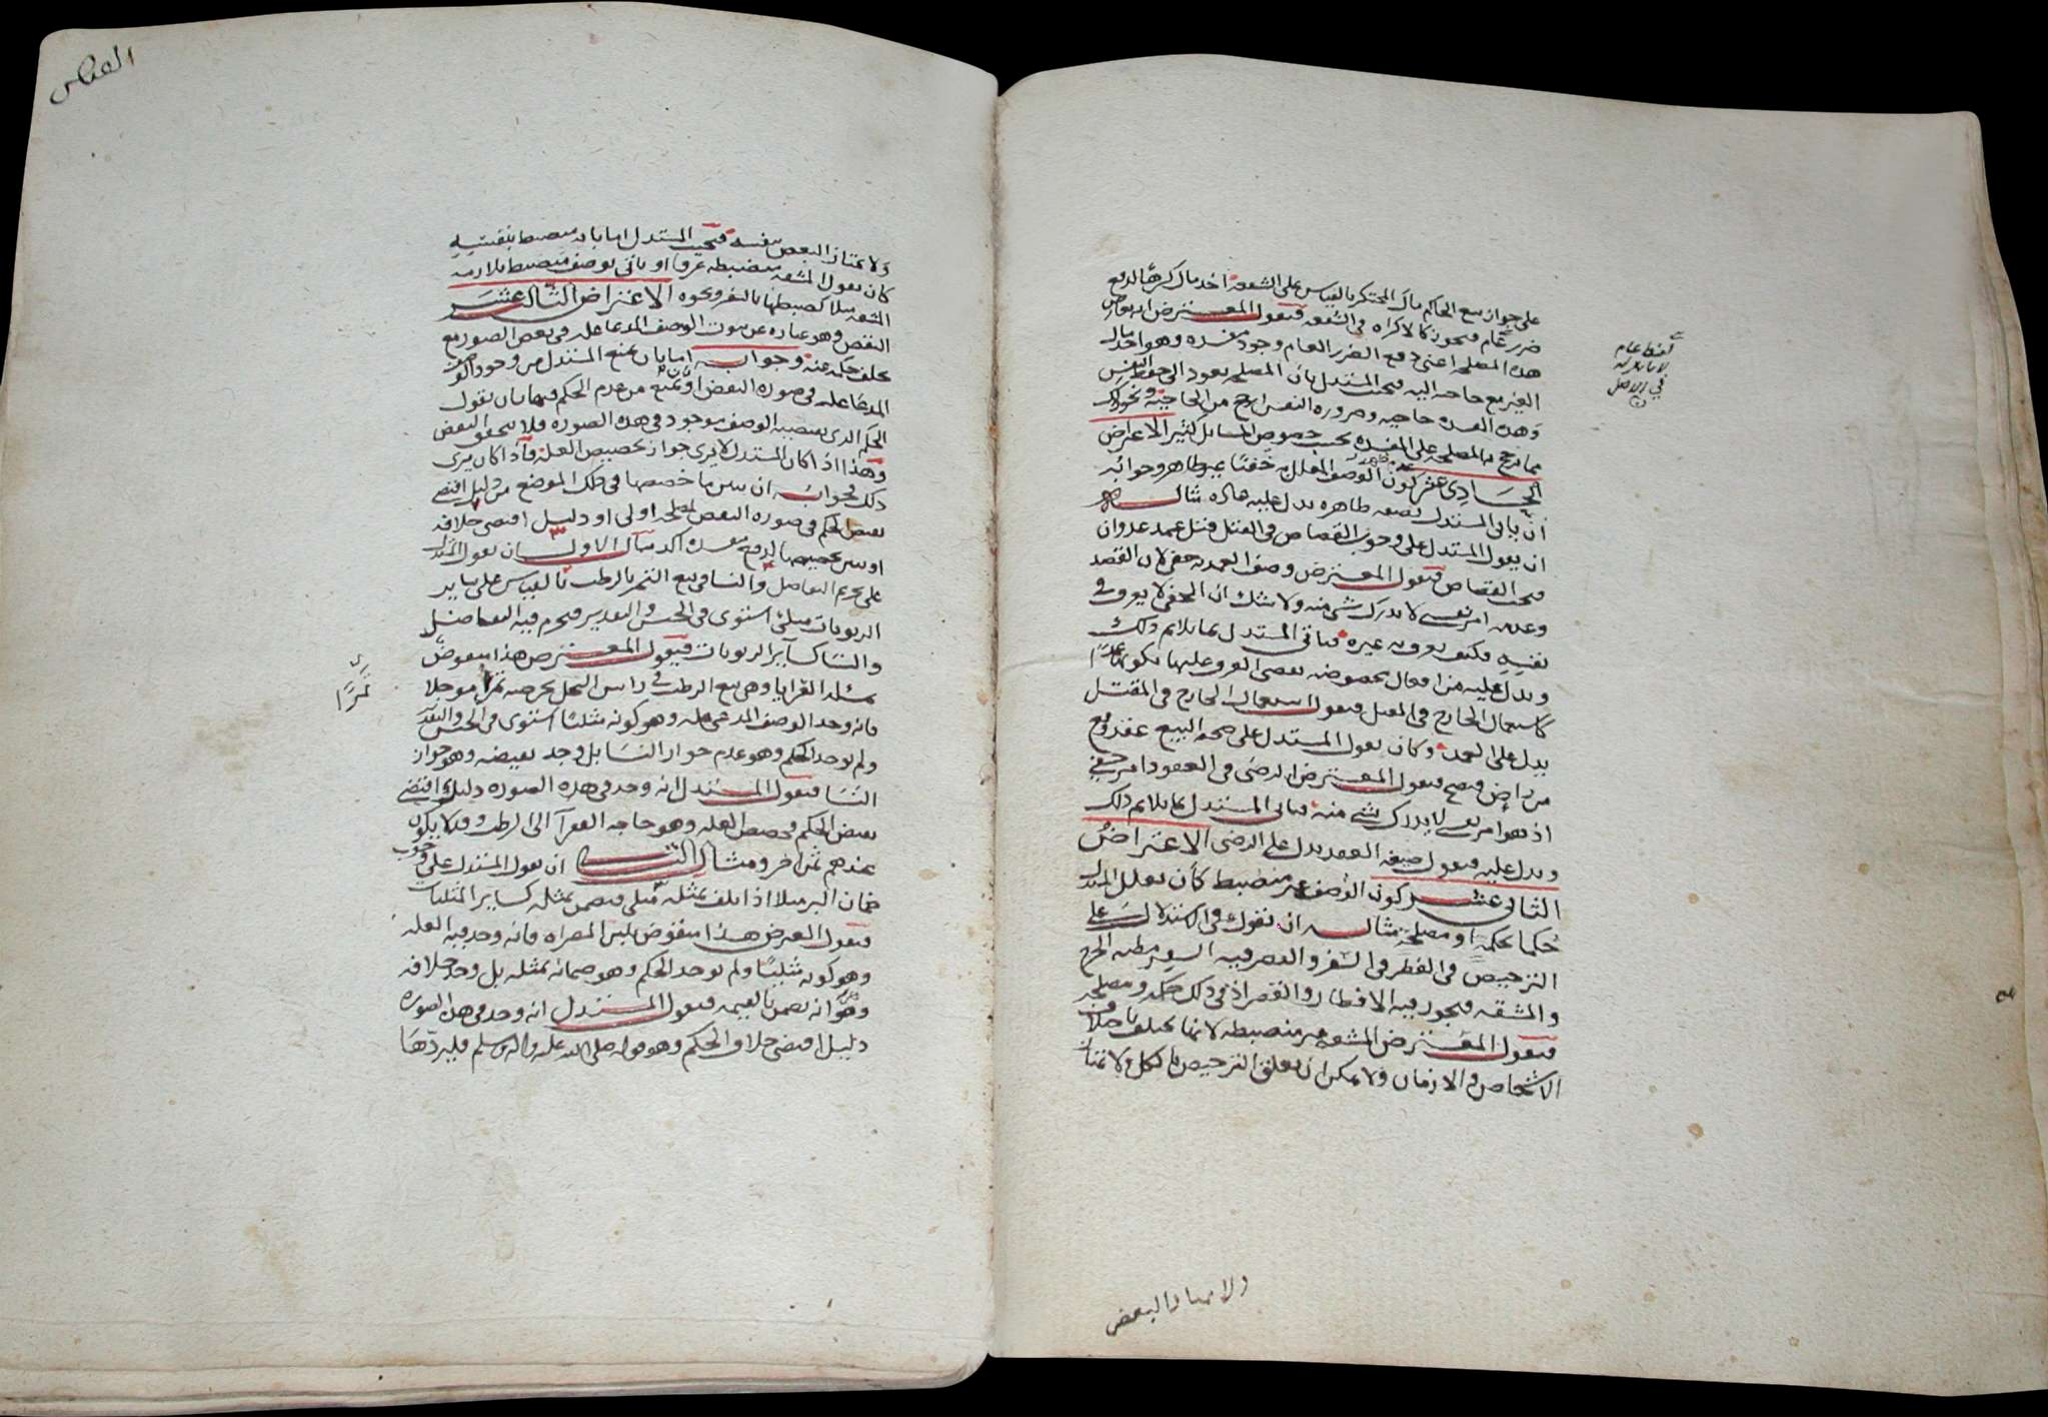 على جواز بيع الحاكم مال المحتكر بالقياس على الشفعة اخذ مال كرها لدفع
ضرر عام فيجوز كالاكراه في الشفعة فيقول المعترض انه يعارض
هذه المصلحة اعني دفع الضرر العام وجود مفسدة وهو اخذ مال
الغير مع حاجته اليه فيجيب المستدل بان المصلحة تعود الى حفظ النفس
وهذه المفسدة حاجية وضرورة النفس ارجح من الحاجية ونحو ذلك
مما ترجح به المصلحة على المفسدة بحسب خصوص المسائل كثير الاعتراض
الحادي عشر كون الوصف المعلل به خفيا غير ظاهر وجوابه
ان يأتي المستدل بصفة ظاهرة يدل عليه عادة مثاله
ان يقول المستدل على وجوب القصاص في القتل قتل عمد عدوان
فيجب القصاص فيقول المعترض وصف العمدية خفي لان القصد
وعدمه امر نفسي لا يدرك شي منه ولا شك ان الخفي لا يعرف في
نفسه فكيف يعرف به غيره فيأتي المستدل بما يلازم ذلك
ويدل عليه من افعال مخصوصة يقضي العرف عليها بكونها عمدا
كاستعمال الجارح في القتل فيقول استعمال الجارح في المقتل
يدل على العمد وكأن يقول المستدل على صحة البيع عقد وقع
من راض فيصح فيقول المعترض الرضى في العقود امر خفي
اذ هو امر نفسي لا يدرك شي منه فيأتي المستدل بما يلازم ذلك
ويدل عليه فيقول صيغة العقد يدل على الرضى الاعتراض
الثاني عشر كون الوصف غير منضبط كأن يعلل المستدل
حكما بحكمة او مصلحة مثاله ان يقول في الاستدلال على
الترخيص في الفطر في السفر والقصر فيه السفر مظنة الحرج
والمشقة فيجوز فيه الافطار والقصر اذ في ذلك حكمة ومصلحة
فيقول المعترض المشقة غير منضبطة لانها تختلف باختلاف
الاشخاص والازمان ولا يمكن ان يعلق الترخيص بالكل ولا يمتاز
لفظ عام
في الاصل
ولا يمتاز البعض
ولا يمتاز البعض بنفسه فيجيب المستدل اما بانه منضبط بنفسه
كأن يقول المشقة منضبطة عرفا او يأتي بوصف منضبط يلازمه
المشقة مثلا كضبطها بالسفر ونحوه الاعتراض الثالث عشر
النقض وهو عبارة عن ثبوت الوصف المدعا علة في بعض الصور مع
تخلف حكمه عنه وجوابه اما بان يمنع المستدل من وجود الوصف
المدعا علة في صورة النقض او بان يمنع من عدم الحكم فيها بان يقول
الحكم الذي يقتضيه الوصف موجود في هذه الصورة فلا يتحقق النقض
وهذا اذا كان المستدل لا يرى جواز تخصيص العلة فأذا كان يرى
ذلك فجوابه ان يبين ما خصصها في ذلك الموضع من دليل اقتضى
نقيض الحكم في صورة النقض لمصلحة اولى او دليل اقتضى خلافه
او يبين تخصيصها لدفع مفسدة اكد مثال الاول ان يقول المستدل
على تحريم التفاضل والنسا في بيع التمر بالرطب بالقياس على ساير
الربويات مثلي استوى في الجنس والتقدير فيحرم فيه التفاضل
والنسا كسائر الربويات فيقول المعترض هذا منقوض
بمسئلة العرايا وهي بيع الرطب في راس النخل بخرصه تمرا موجلا
فانه وجد الوصف المدعى علة وهو كونه مثليا استوى في الجنس والتقدير
ولم يوجد الحكم وهو عدم جواز النسا بل وجد نقيضه وهو جواز
النسا فيقول المستدل انه وجد في هذه الصورة دليل اقتضى
نقيض الحكم وخصص العلة وهو حاجة الفقرآ الى الرطب وقد لا يكون
عندهم ثمن اخر ومثال الثاني ان يقول المستدل على وجوب
ضمان البر مثلا اذا تلف بمثله مثلي فيضمن بمثله كساير المثليات
فيقول المعترض هذا منقوض بلبن المصراه فانه وجد فيه العلة
وهو كونه مثليا ولم يوجد الحكم وهو ضمانه بمثله بل وجد خلافه
وهو انه يضمن بالقيمة فيقول المستدل انه وجد في هذه الصورة
دليل اقتضى خلاف الحكم وهو قوله صلى الله عليه واله وسلم فليردها
تمرا